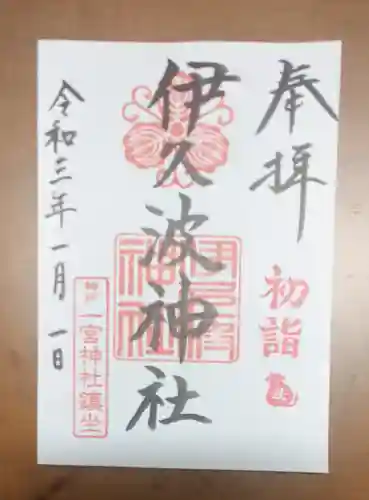 奉拝
初詣
伊久波神社
伊久波
神社
令和三年一月一日
神戸
一宮神社鎮坐